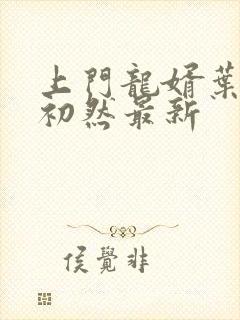 上門龍婿葉
初然最新
侯覺非